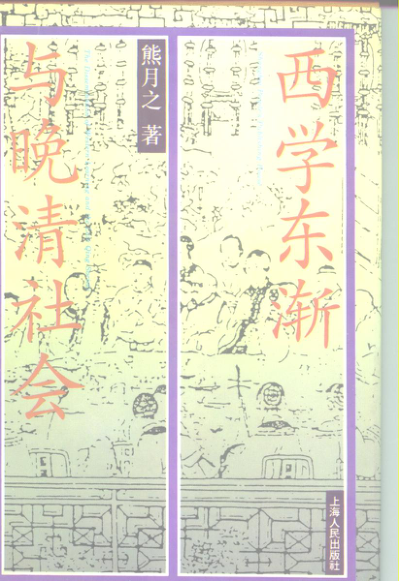 西学东渐
与晚清社会
熊月之 著
上海人民出版社